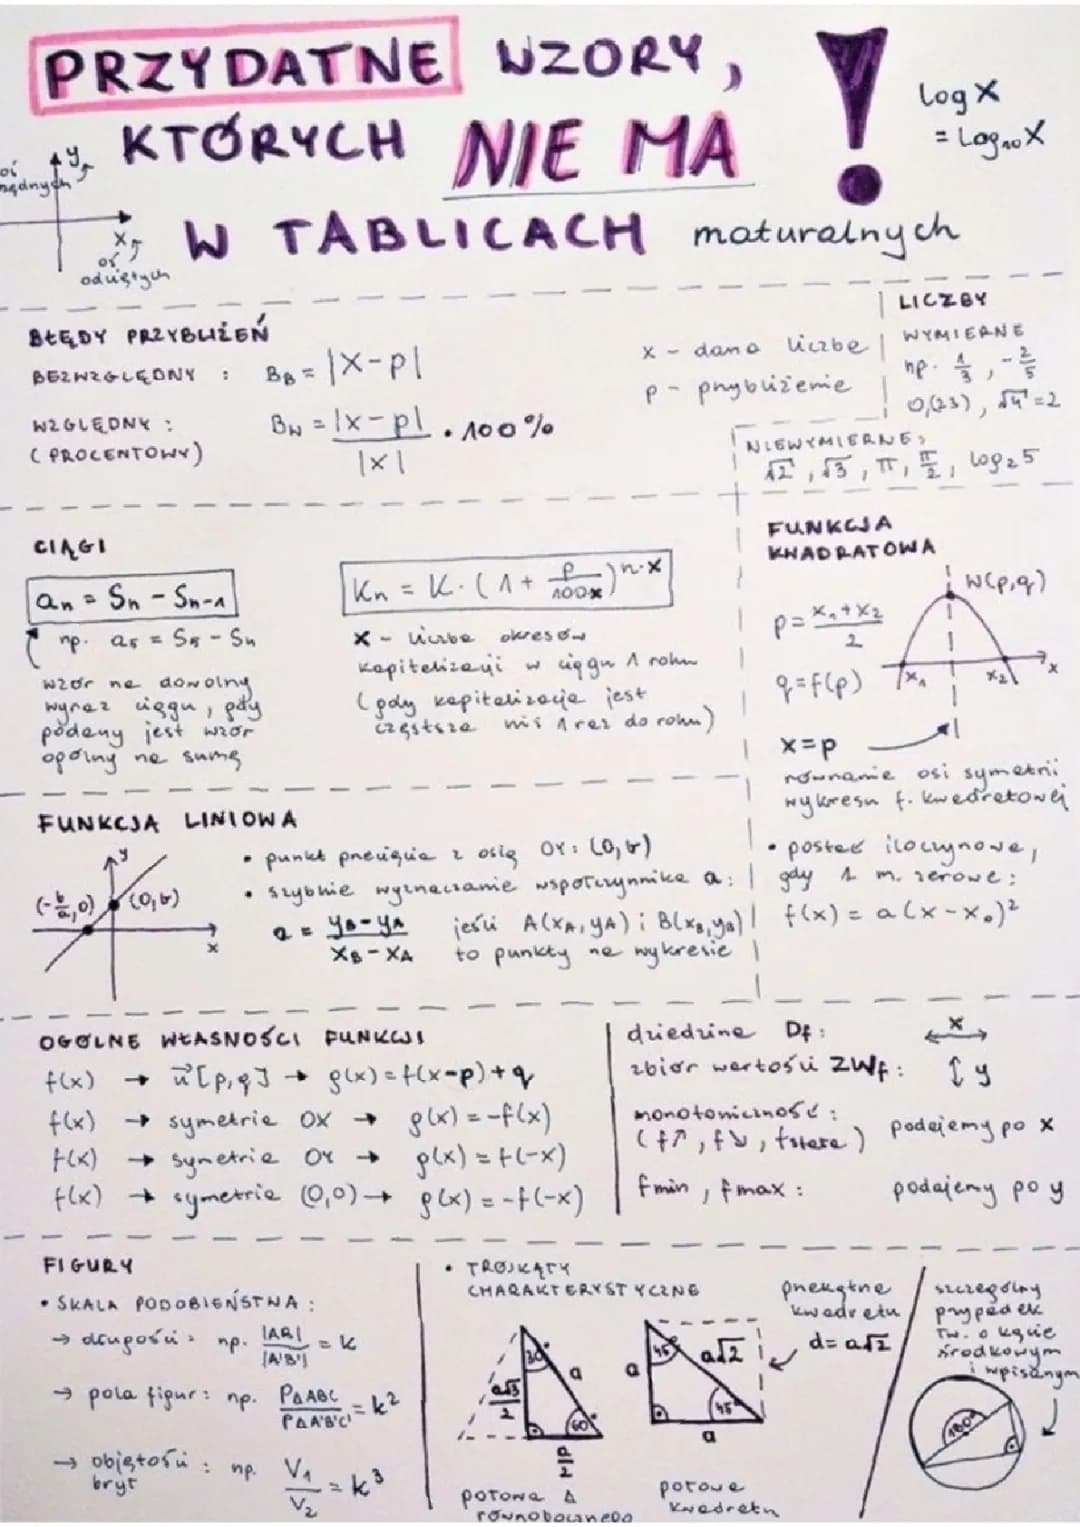 PRZYDATNE WZORY,
KTÓRYCH NIE MA !
W TABLICACH maturalnych
log x
= log₁₀ x
y
oś
x
oś
odciętych
BŁĘDY PRZYBLIŻEŃ
BEZWZGLĘDNY : B_B = |x-p|
WZGLĘDNY :
(PROCENTOWY)
B_W = |x-p| / |x| · 100%
x - dana liczba
p - przybliżenie
LICZBY
WYMIERNE
np. 1/3, -2/5
0,(23), √4 = 2
NIEWYMIERNE:
√2, √3, π, π/2, log₂5
CIĄGI
aₙ = Sₙ - Sₙ₋₁
np. a₅ = S₅ - S₄
wzór na dowolny
wyraz ciągu, gdy
podany jest wzór
ogólny na sumę
Kₙ = K · (1 + p/100x)ⁿ·ˣ
x - liczba okresów
kapitalizacji w ciągu 1 roku
(gdy kapitalizacja jest
częstsza niż 1 raz do roku)
FUNKCJA
KWADRATOWA
W(p,q)
p = (x₁+x₂)/2
q = f(p)
x₁ x₂ x
x = p
równanie osi symetrii
wykresu f. kwadratowej
• postać iloczynowa,
gdy 1 m. zerowe:
f(x) = a(x-x₀)²
FUNKCJA LINIOWA
y
(-b/a,0) (0,b)
x
• punkt przecięcia z osią OY: (0,b)
• szybkie wyznaczanie współczynnika a:
a = (y_B-y_A)/(x_B-x_A) jeśli A(x_A,y_A) i B(x_B,y_B)
to punkty na wykresie
OGÓLNE WŁASNOŚCI FUNKCJI
f(x) → u⃗[p,q] → g(x) = f(x-p)+q
f(x) → symetria OX → g(x) = -f(x)
f(x) → symetria OY → g(x) = f(-x)
f(x) → symetria (0,0) → g(x) = -f(-x)
dziedzina Df: ↔ x
zbiór wartości ZWf: ↕ y
monotoniczność:
(f↗, f↘, fstała) podajemy po x
fmin, fmax: podajemy po y
FIGURY
• SKALA PODOBIEŃSTWA:
→ długości: np. |AB|/|A'B'| = k
→ pola figur: np. P△ABC/P△A'B'C' = k²
→ objętości : np. V₁/V₂ = k³
brył
• TRÓJKĄTY
CHARAKTERYSTYCZNE
30°
a√3/2
a
60°
a/2
połowa △
równobocznego
45°
a
a√2
45°
a
połowa
kwadratu
przekątna
kwadratu
d = a√2
szczególny
przypadek
tw. o kącie
środkowym
i wpisanym
180°